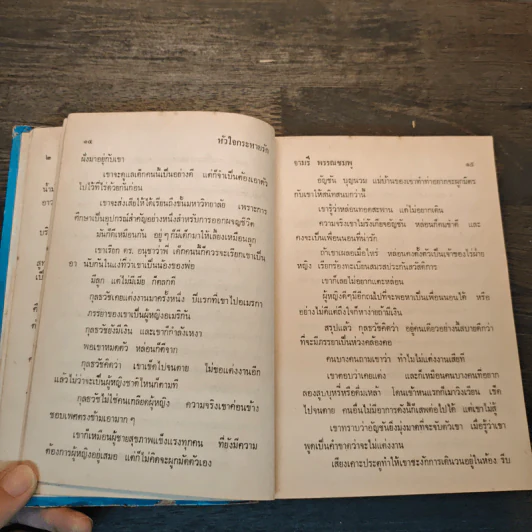 ๑๔
หัวใจกระดาษวัด
ผึ่งมาอยู่กับเขา
เขาจะดูแลเด็กคนนี้อย่างดี แต่ก็จำเป็นต้องเอาตัว
ไปไว้ที่ไร่ด้วยกันก่อน
เขาจะส่งเสียให้ได้เรียนถึงชั้นมหาวิทยาลัย เพราะการ
ศึกษาเป็นอุปกรณ์สำคัญอย่างหนึ่งสำหรับการออกผจญชีวิต
มันก็ดีเหมือนกัน อยู่ ๆ ก็มีเด็กมาให้เลี้ยงเหมือนลูก
เขาเรียก ดร. อนุชาว่าพี่ เด็กคนนี้ก็ควรจะเรียกเขาเป็น
อา นับกันในแง่ที่ว่าเขาเป็นน้องของพ่อ
มีลูก แต่ไม่มีเมีย ก็ตลกดี
กุลธวัชเคยแต่งงานมาครั้งหนึ่ง ปีแรกที่เขาไปอเมริกา
ภรรยาของเขาเป็นผู้หญิงอเมริกัน
กุลธวัชยังมีเงิน และเขาก็กำลังเหงา
พอเขาหมดตัว หล่อนก็ตีจาก
กุลธวัชคิดว่า เขาเข็ดไปจนตาย ไม่ขอแต่งงานอีก
แล้วไม่ว่าจะเป็นผู้หญิงชาติไหนก็ตามที
กุลธวัชไม่ใช่คนเกลียดผู้หญิง ความจริงเขาค่อนข้าง
ชอบเพศตรงข้ามเอามาก ๆ
เขาก็เหมือนผู้ชายสุขภาพแข็งแรงทุกคน ที่ยังมีความ
ต้องการผู้หญิงอยู่เสมอ แต่ก็ไม่คิดจะผูกมัดตัวเอง
อามรี พรรณชมพู
๑๕
อัญชัน บุญนวม แม่บ้านของเขาทำท่าอยากจะผูกมิตร
กับเขาให้สนิทสนมกว่านี้
เขารู้ว่าหล่อนทอดสะพาน แต่ไม่อยากเดิน
ความจริงเขาไม่รังเกียจอัญชัน หล่อนก็คนเข้าที และ
คงจะเป็นเพื่อนนอนที่น่ารัก
ถ้าเขาเผลอเมื่อไหร่ หล่อนคงตั้งตัวเป็นเจ้าของไร่ฝ่าย
หญิง เรียกร้องทะเบียนสมรสประกันสวัสดิการ
เขาก็เลยไม่อยากแตะหล่อน
ผู้หญิงดีๆมีอีกถมไปที่จะพอหาเป็นเพื่อนนอนได้ หรือ
อย่างไม่ดีแต่ถึงใจก็หาง่ายถ้ามีเงิน
สรุปแล้ว กุลธวัชคิดว่า อยู่คนเดียวอย่างนี้สบายดีกว่า
ที่จะมีภรรยาเป็นห่วงคล้องคอ
คนบางคนถามเขาว่า ทำไมไม่แต่งงานเสียที
เขาตอบว่าเคยแต่ง และก็เหมือนคนบางคนที่อยาก
ลองสูบบุหรี่หรือดื่มเหล้า โดนเข้าหนแรกก็เมาวิงเวียน เข็ด
ไปจนตาย คนอื่นไม่มีอาการดังนี้ก็เสพต่อไปได้ แต่เขาไม่สู้
เขาทราบว่าอัญชันถึงมุ่งมาดที่จะจับตัวเขา เมื่อรู้ว่าเขา
พูดเป็นคำขาดว่าจะไม่แต่งงาน
เสียงเคาะประตูทำให้เขาชะงักการเดินวนอยู่ในห้อง รีบ